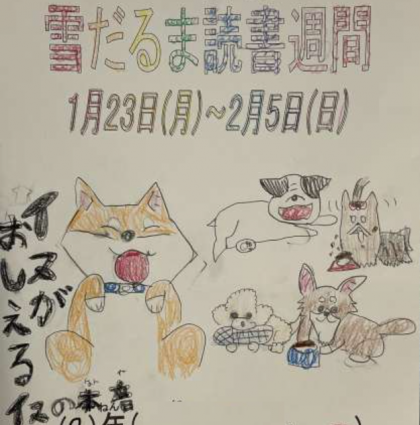 雪だるま読書週間
1月23日(月)~2月5日(日)
イヌが
おしえるイヌの本音
(2)年(